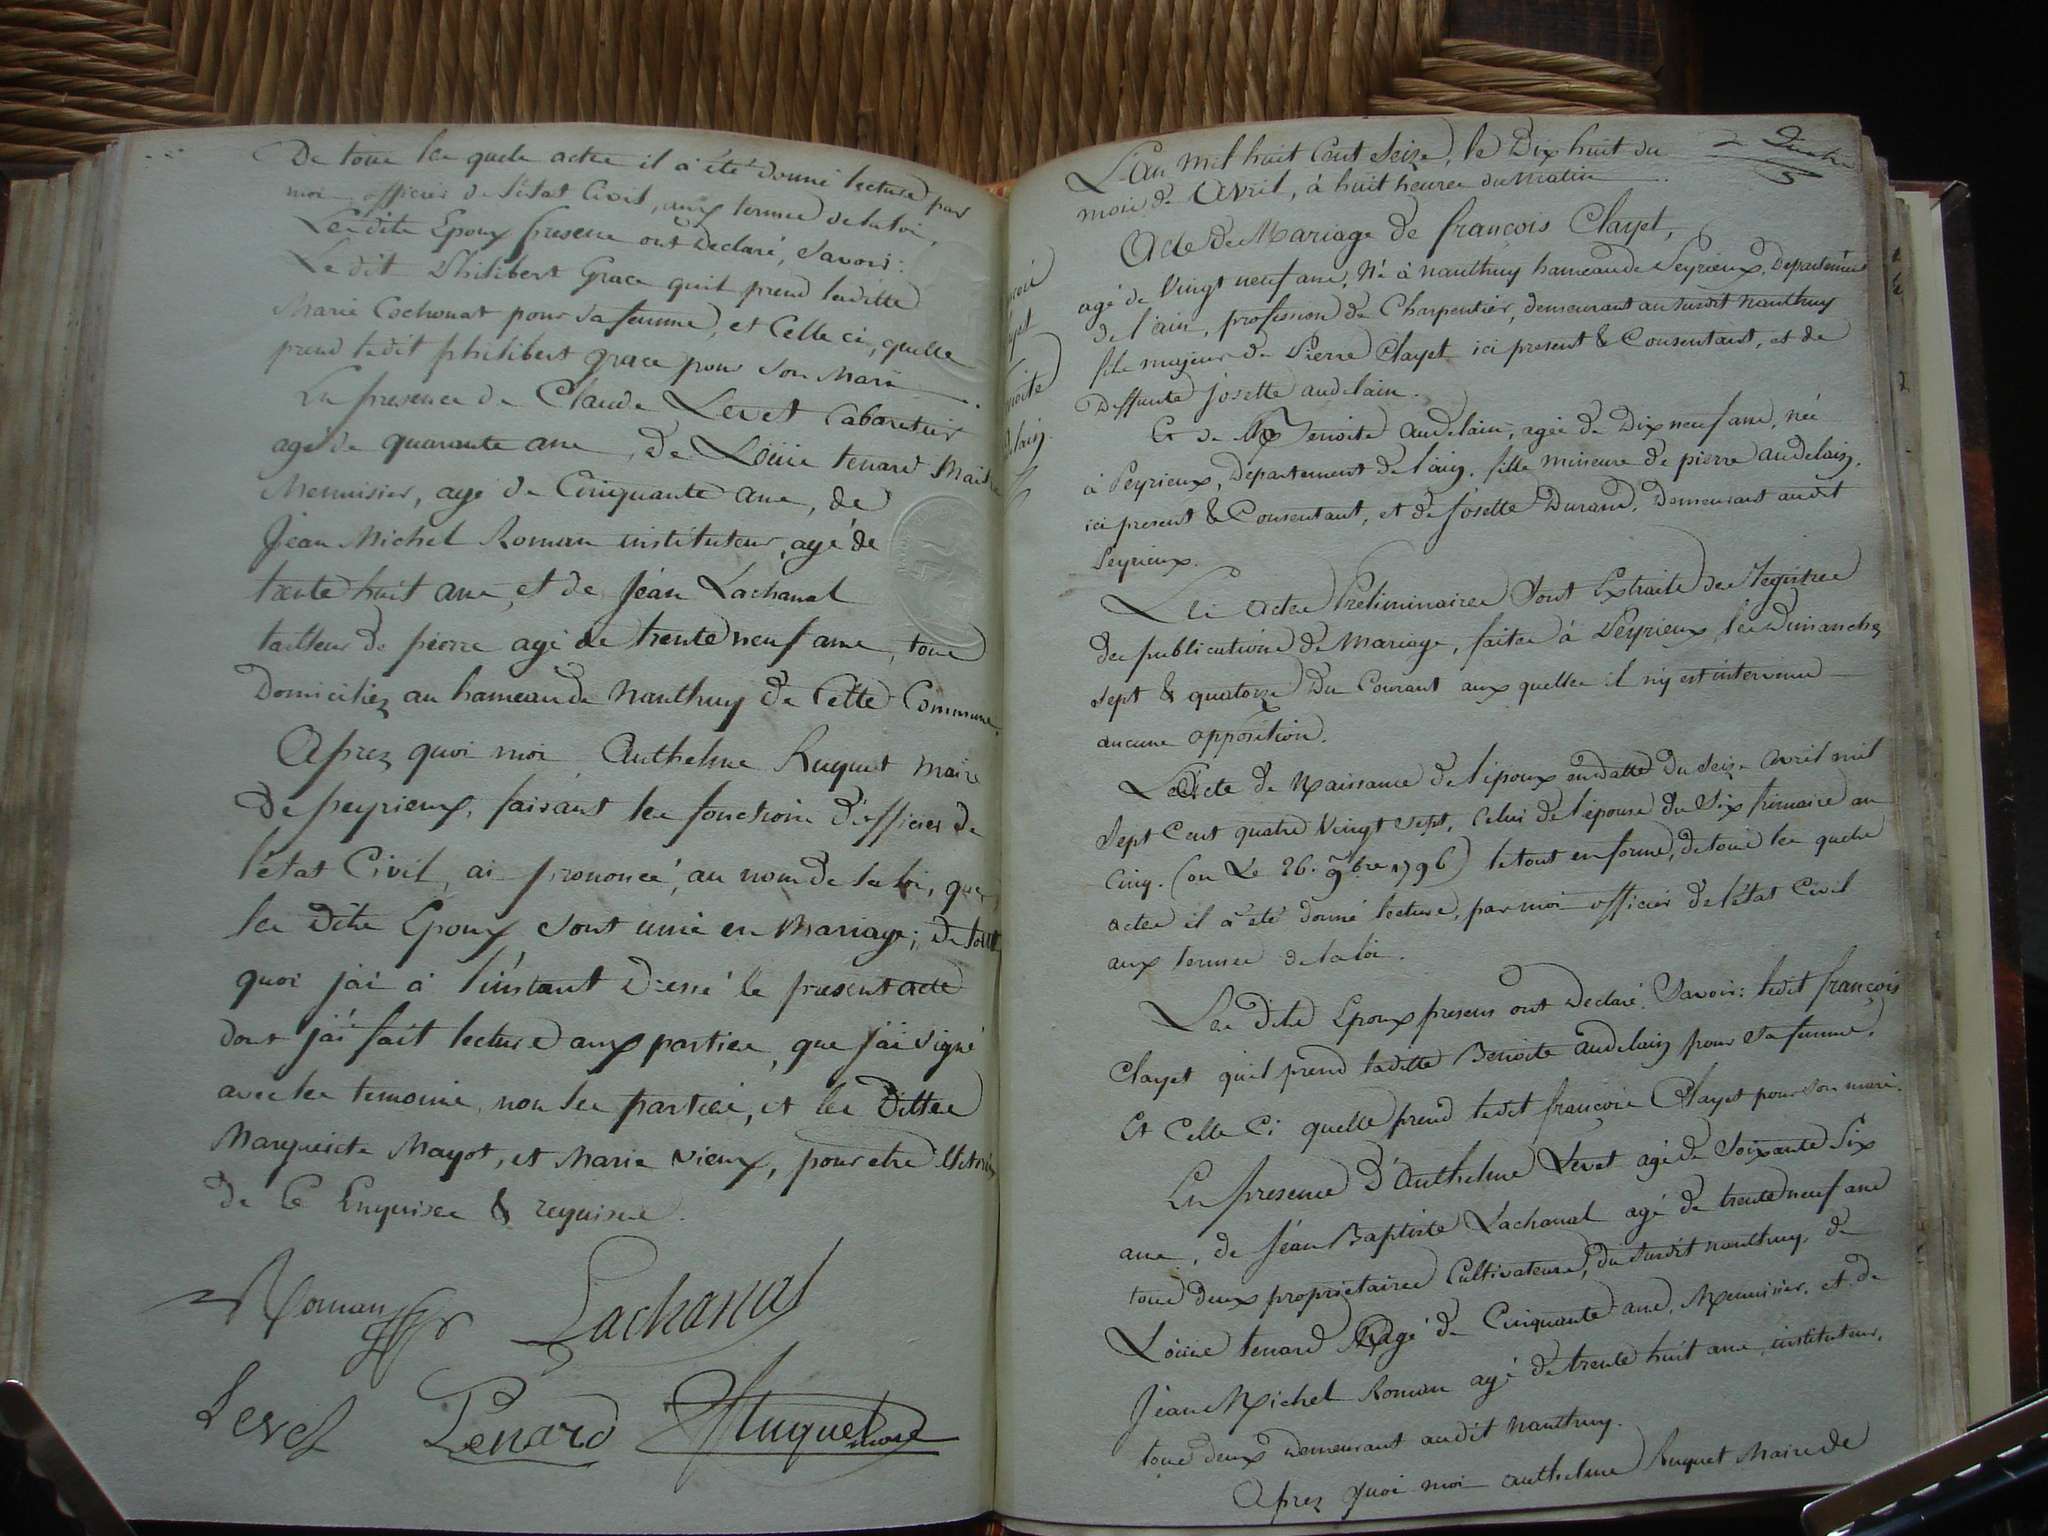 De tous les quels actes il à été donné lecture par
moi officier de l'état Civil, aux termes de la loi,
Lesdits Epoux presens ont declaré, savoir:
Le dit Philibert Grace quil prend laditte
Marie Cochonat pour sa femme, et Celle ci, quelle
prend ledit philibert grace pour son Mari
En presence de Claude Levet Cabaretier
agé de quarante ans, de Loüis tenard Maitre
Menuisier, agé de Cinquante ans, de
Jean Michel Roman instituteur, agé de
trente huit ans, et de Jéan Lachanal
tailleur de pierre agé de trente neuf ans, tous
Domiciliez au hameau de Nanthuy de Cette Commune
Aprez quoi moi Anthelme Huguet maire
de peyrieux, faisant les fonctions d'officier de
l'état Civil, ai prononcé, au nom de la loi, que
les dits Epoux sont unis en Mariage; de tout
quoi j'ai à l'instant Dressé le présent acte
dont j'ai fait lecture aux parties, que j'ai signé
avec les temoins, non les parties, et les dittes
Marguerite Mayot, et Marie Vieux, pour etre illitérées
de Ce Enquises & requises.
Roman Lachanal
Levet Tenard Huguet maire
2 Duchre
L'an mil huit Cent Seize, le Dix huit du
mois de Avril, à huit heures du Matin
Acte de Mariage de françois Clayet,
agé de Vingt neuf ans, Né à nanthuy hameau de Peyrieux, Departement
de l'ain, profession de Charpentier, demeurant au susdit Nanthuy
fils majeur de Pierre Clayet ici present & Consentant, et de
Deffunte Josette audelain.
Et de Benoite audelain, agée de Dix neuf ans, née
à Peyrieux, Departement de l'ain. fille mineure de pierre audelain,
ici present & Consentant, et de Josette Durand, Demeurant audit
Peyrieux.
Les actes Preliminaires Sont Extraits des Registres
des publications de Mariage, faites à Peyrieux les Dimanches
sept & quatorze Du Courant aux quelles il n'y est intervenu
aucune opposition.
L'acte de Naissance de l'époux en datte du Seize Avril mil
Sept Cent quatre Vingt Sept, Celui de l'épouse du Six frimaire an
Cinq. (ou Le 26. 9bre 1796) le tout en forme, de tous les quels
actes il à été donné lecture, par moi officier de l'état Civil
aux termes de la loi.
Les dits Epoux presens ont Declaré, Savoir: ledit françois
Clayet quil prend laditte Benoite audelain pour sa femme,
Et Celle Ci quelle prend ledit françois Clayet pour son mari.
En presence d'Anthelme Levet agé de Soixante Six
ans, de Jéan Baptiste Lachanal agé de trente neuf ans
tous deux proprietaires Cultivateurs, du susdit nanthuy, de
Loüis tenard agé de Cinquante ans, Menuisier, et de
Jéan Michel Roman agé de trente huit ans, instituteur,
tous deux Demeurant audit Nanthuy.
Aprez quoi moi anthelme Huguet Maire de